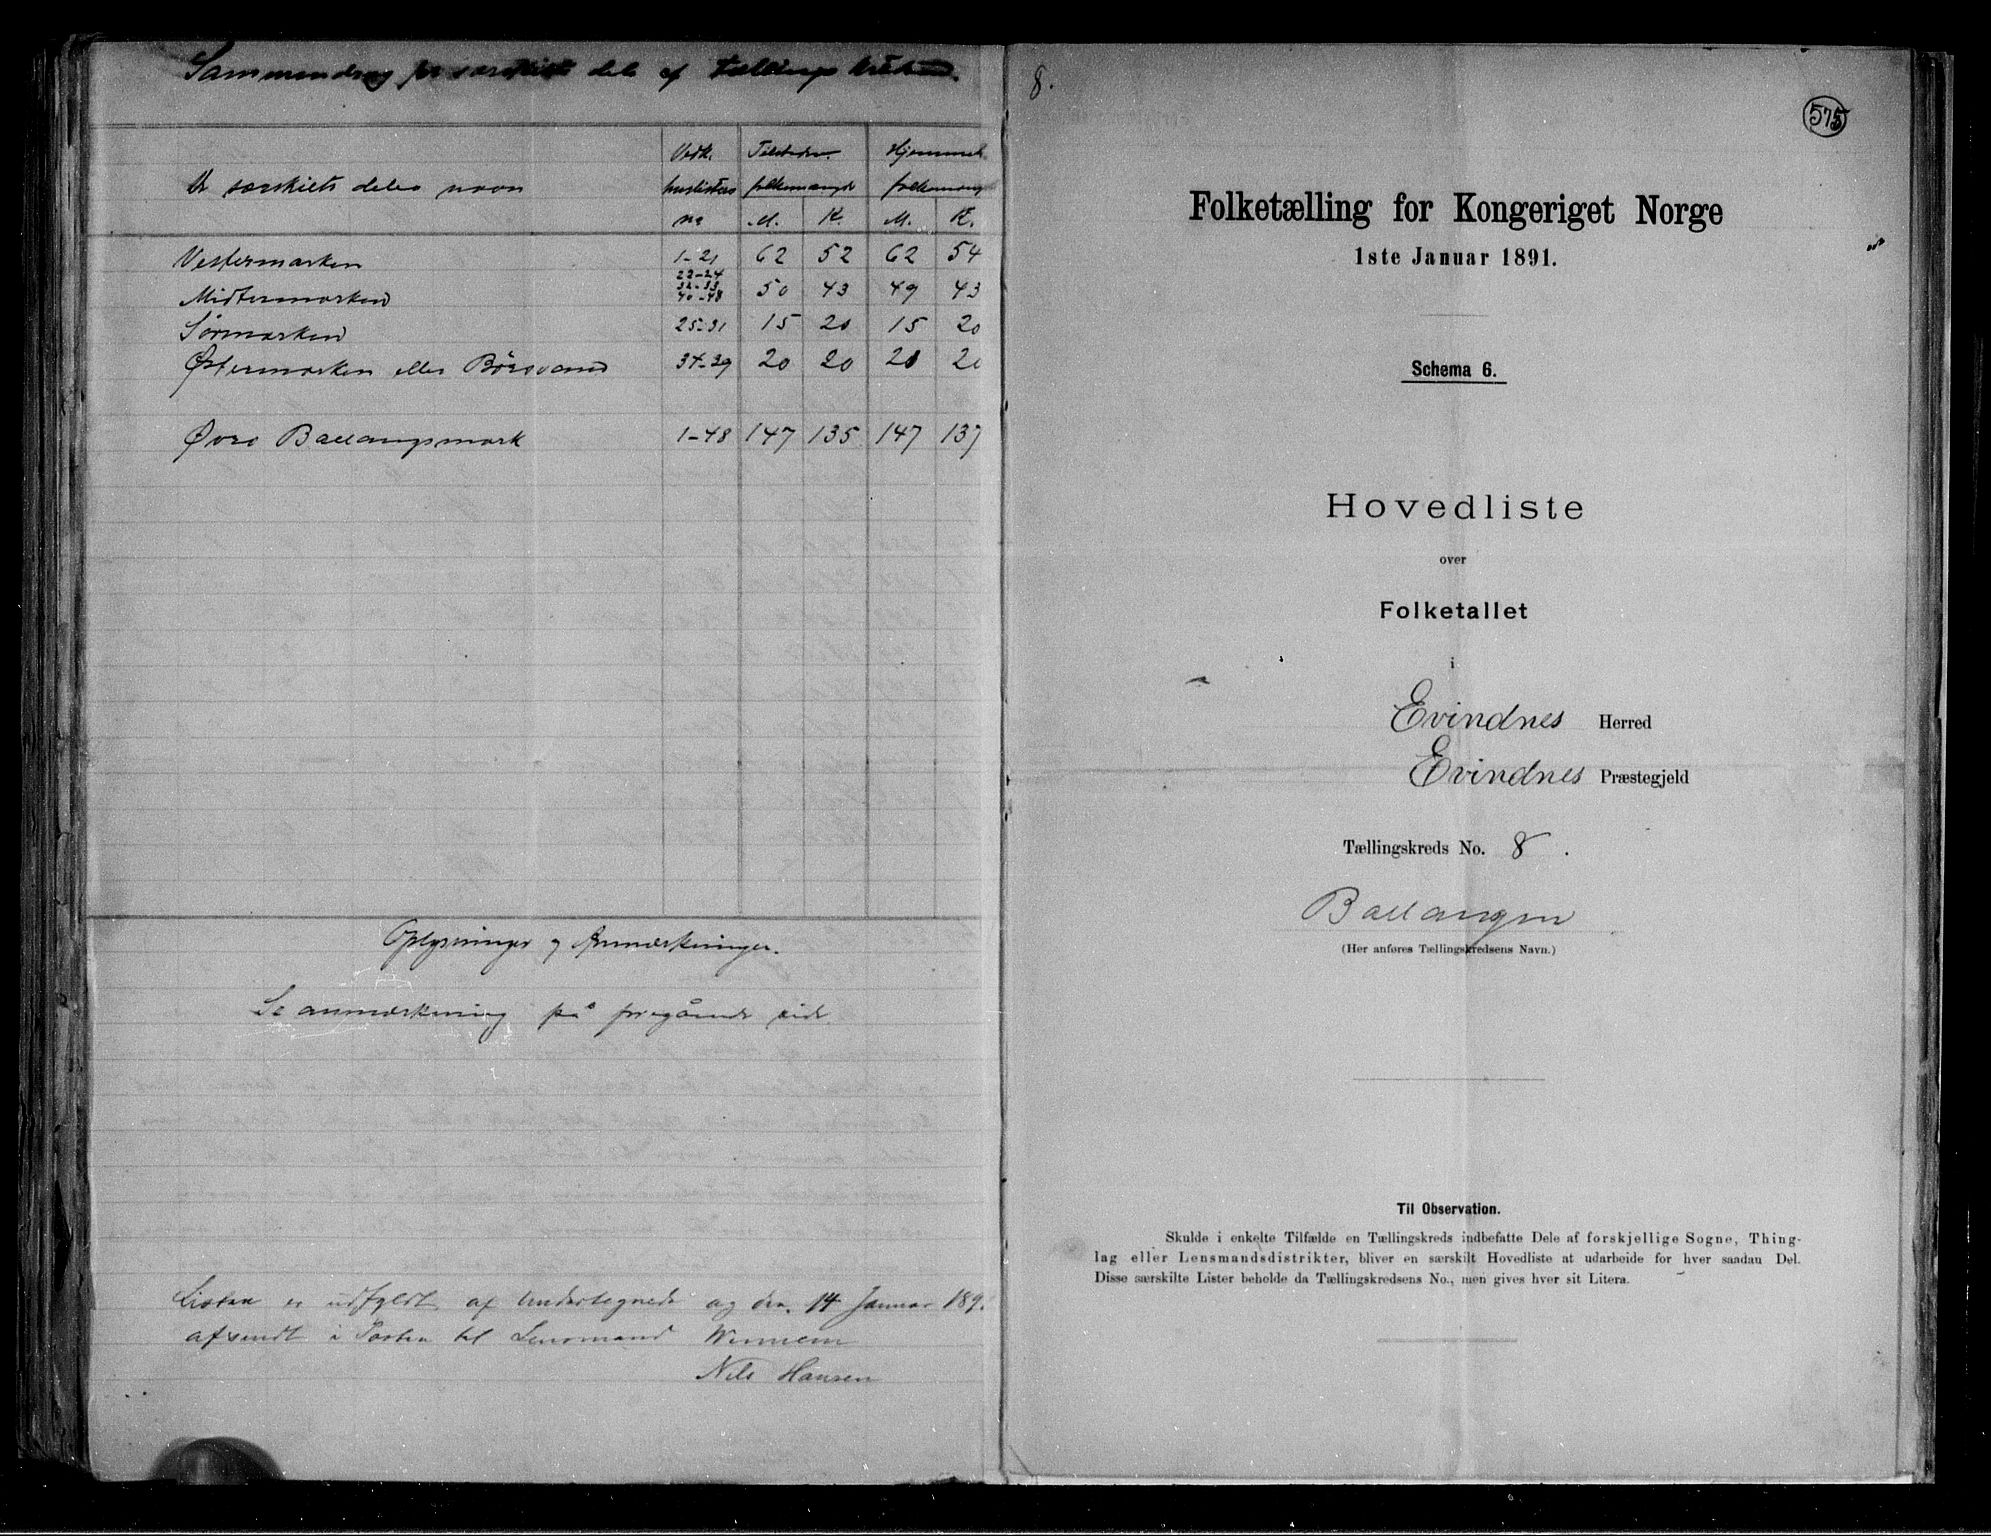 Sammendrag for særskilt del af tællingskreds.
Vedk. Tilstedev. Hjemmeh.
De særskilte deles navn huslisters folkemængde folkemæng
no M. K. M. K.
Vestermarken 1-21 62 52 62 54
22-24
Midtermarken 32-33 50 43 49 43
40-48
Sørmarken 25-31 15 20 15 20
Østermarken eller Børsvand 34-39 20 20 21 20
Øvre Ballangsmark 1-48 147 135 147 137
Oplysninger og Anmærkninger.
Se anmærkning på foregående side.
Listen er udfyldt af Undertegnede og den 14 Januar 189
afsendt i Posten til Lensmand
Nils Hansen
8.
575
Folketælling for Kongeriget Norge
1ste Januar 1891.
Schema 6.
Hovedliste
over
Folketallet
i
Evindnes Herred
Evindnes Præstegjeld
Tællingskreds No. 8.
Ballangen
(Her anføres Tællingskredsens Navn.)
Til Observation.
Skulde i enkelte Tilfælde en Tællingskreds indbefatte Dele af forskjellige Sogne, Thing-
lag eller Lensmandsdistrikter, bliver en særskilt Hovedliste at udarbeide for hver saadan Del.
Disse særskilte Lister beholde da Tællingskredsens No., men gives hver sit Litera.